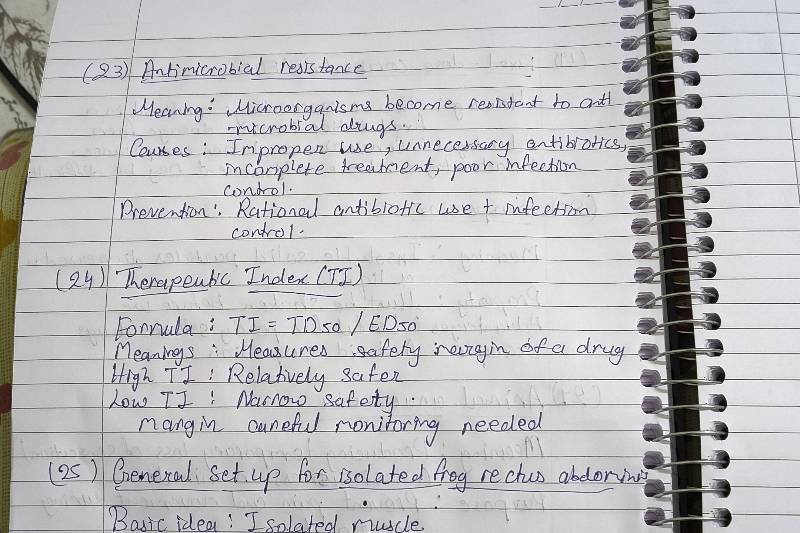 (23) Antimicrobial resistance
Meaning: Microorganisms become resistant to anti
microbial drugs.
Causes: Improper use, unnecessary antibiotics,
incomplete treatment, poor infection
control.
Prevention: Rational antibiotic use + infection
control.
(24) Therapeutic Index (TI)
Formula: TI = TD50 / ED50
Meanings: Measures safety margin of a drug
High TI: Relatively safer
Low TI: Narrow safety.
margin careful monitoring needed
(25) General set.up for isolated frog rectus abdominis
Basic idea: Isolated muscle